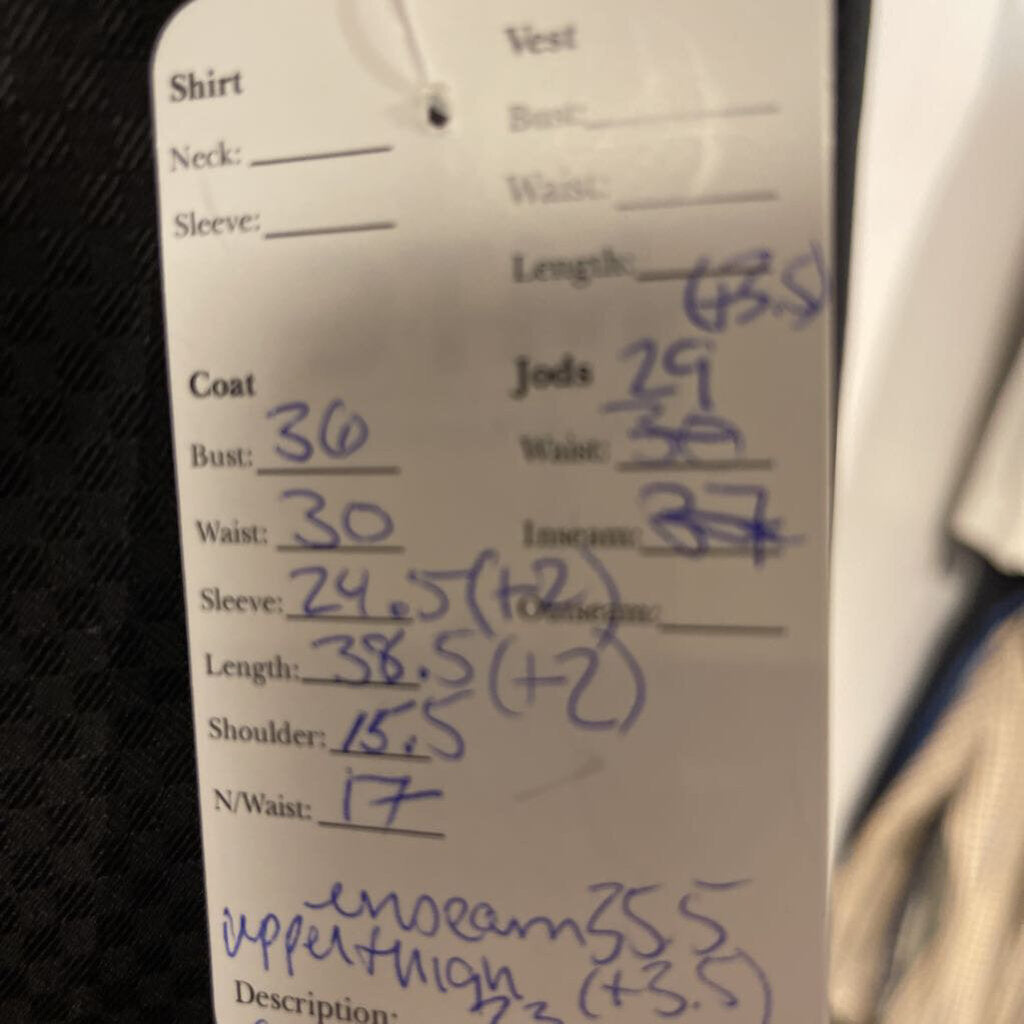 Shirt
Neck:
Sleeve:
Vest
Bust:
Waist:
Length:
(+3.5)
Coat
Bust: 36
Waist: 30
Sleeve: 24.5 (+2)
Length: 38.5 (+2)
Shoulder: 15.5
N/Waist: 17
Jods 29
Waist: 30
Inseam: 37
Outseam:
inseam 35.5
upper thigh (+3.5)
Description: